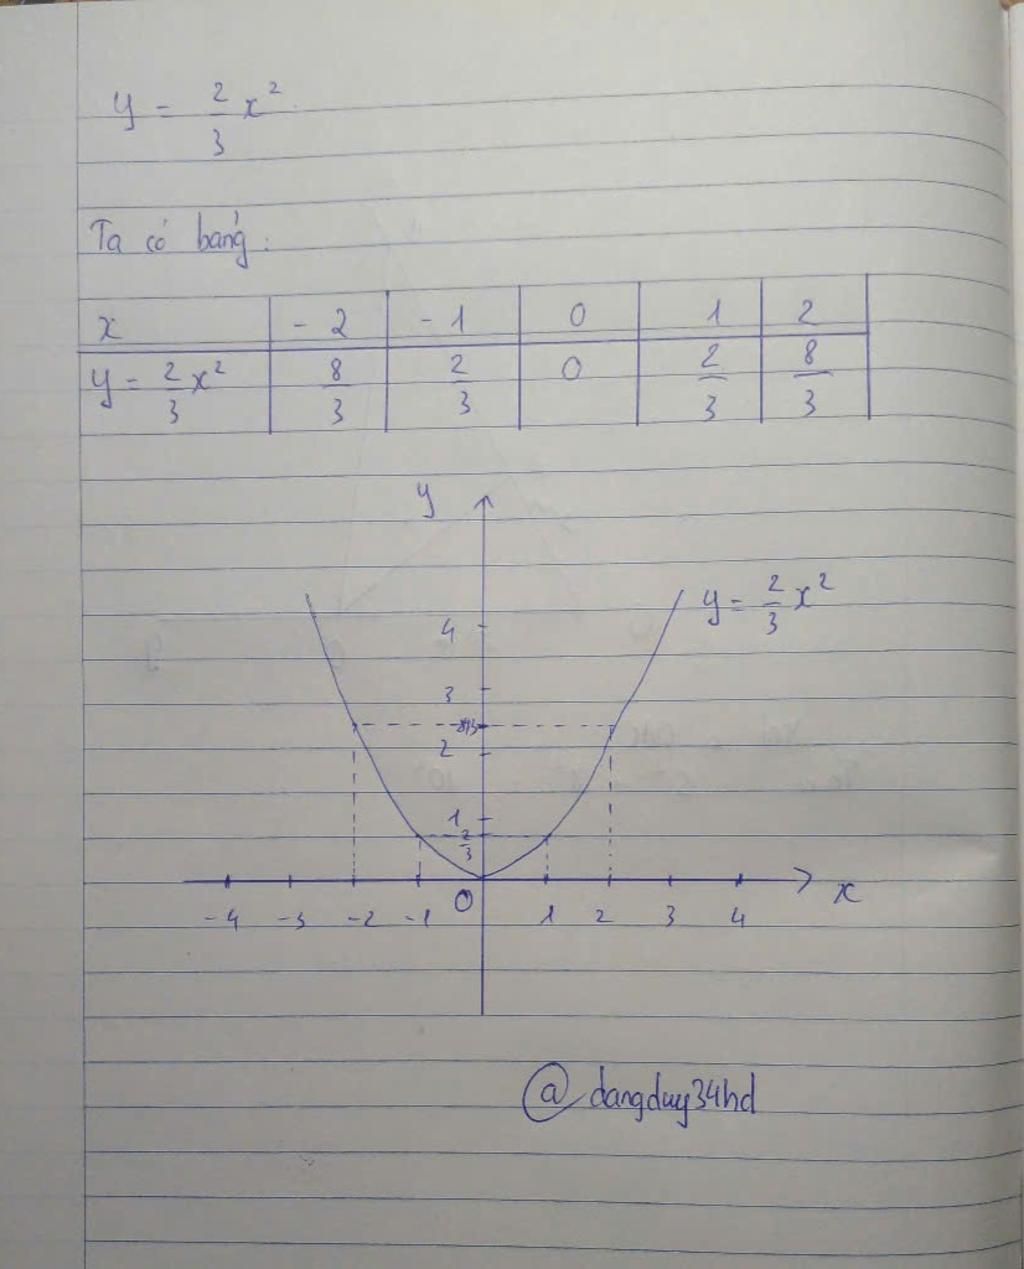 y = 2/3 x²
Ta có bảng:
x -2 -1 0 1 2
y = 2/3 x² 8/3 2/3 0 2/3 8/3
y
y = 2/3 x²
4
3
8/3
2
1
2/3
O
x
-4 -3 -2 -1 1 2 3 4
@dangduy34hd